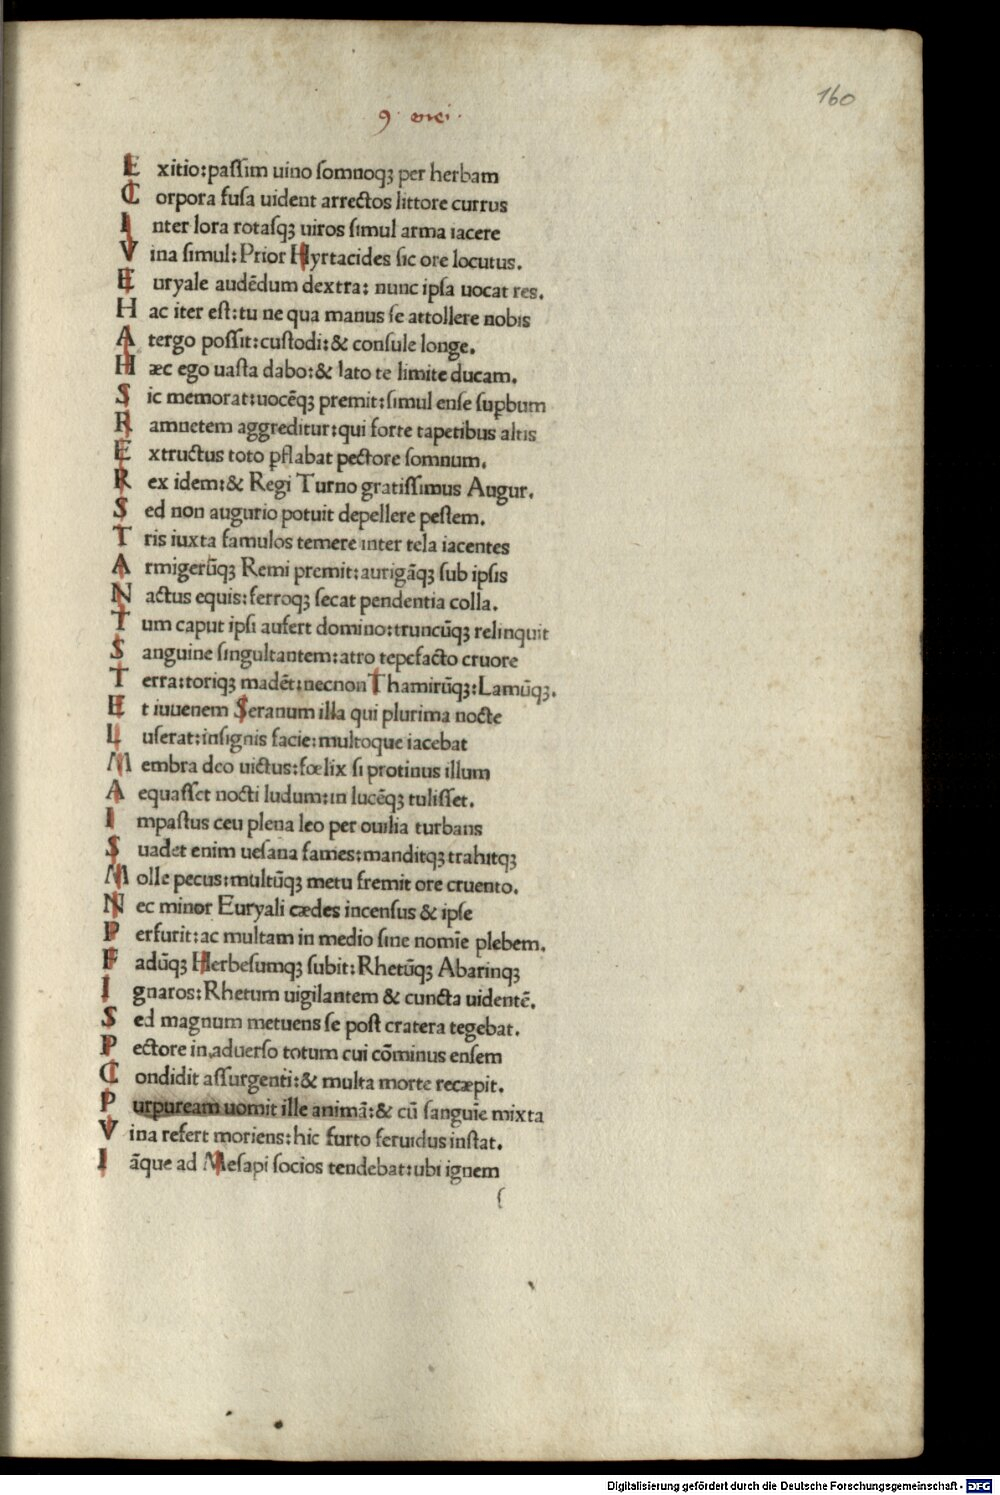 160
E xitio:paſſim uino ſomnoqꝫ per herbam
C orpora fuſa uident arrectos littore currus
I nter lora rotaſqꝫ uiros ſimul arma iacere
V ina ſimul: Prior Hyrtacides ſic ore locutus.
E uryale audēdum dextra: nunc ipſa uocat res.
H ac iter eſt:tu ne qua manus ſe attollere nobis
A tergo poſſit:cuſtodi:& conſule longe.
H æc ego uaſta dabo:& lato te limite ducam.
S ic memorat:uocēqꝫ premit:ſimul enſe ſuꝑbum
R amnetem aggreditur:qui forte tapetibus altis
E xtructus toto ꝓflabat pectore ſomnum.
R ex idem:& Regi Turno gratiſſimus Augur.
S ed non augurio potuit depellere peſtem.
T ris iuxta famulos temere inter tela iacentes
A rmigerūqꝫ Remi premit:aurigāqꝫ ſub ipſis
N actus equis:ferroqꝫ ſecat pendentia colla.
T um caput ipſi aufert domino:truncūqꝫ relinquit
S anguine ſingultantem:atro tepefacto cruore
T erra:toriqꝫ madēt:necnon Thamirūqꝫ:Lamūqꝫ.
E t iuuenem Seranum illa qui plurima nocte
L uſerat:inſignis facie:multoque iacebat
M embra deo uictus:fœlix ſi protinus illum
A equaſſet nocti ludum:in lucēqꝫ tuliſſet.
I mpaſtus ceu plena leo per ouilia turbans
S uadet enim ueſana fames:manditqꝫ trahitqꝫ
M olle pecus:multūqꝫ metu fremit ore cruento.
N ec minor Euryali cædes incenſus & ipſe
P erfurit:ac multam in medio ſine nomīe plebem.
F adūqꝫ Herbeſumqꝫ ſubit:Rhetūqꝫ Abarinqꝫ
I gnaros:Rhetum uigilantem & cuncta uidentē.
S ed magnum metuens ſe poſt cratera tegebat.
P ectore in aduerſo totum cui cōminus enſem
C ondidit aſſurgenti:& multa morte recæpit.
P urpuream uomit ille animā:& cū ſanguīe mixta
V ina refert moriens:hic furto feruidus inſtat.
I āque ad Meſapi ſocios tendebat:ubi ignem
ſ
Digitalisierung gefördert durch die Deutsche Forschungsgemeinschaft - DFG